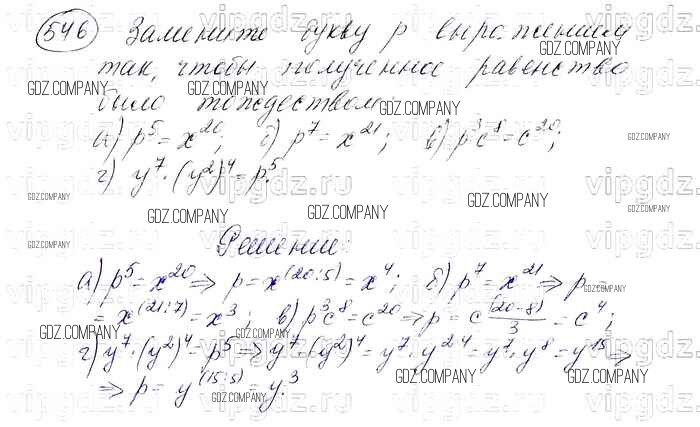 546 Замените букву p выражением
так, чтобы полученное равенство
было тождеством:
а) p⁵ = x²⁰; б) p⁷ = x²¹; в) p³c⁸ = c²⁰;
г) y⁷ · (y²)⁴ = p⁵.
Решение:
а) p⁵ = x²⁰ ⇒ p = x^(20:5) = x⁴; б) p⁷ = x²¹ ⇒ p =
= x^(21:7) = x³; в) p³c⁸ = c²⁰ ⇒ p = c^((20-8)/3) = c⁴;
г) y⁷ · (y²)⁴ = p⁵ ⇒ y⁷ · (y²)⁴ = y⁷ · y^(2·4) = y⁷ · y⁸ = y¹⁵ ⇒
⇒ p = y^(15:5) = y³.
GDZ.COMPANY
vipgdz.ru